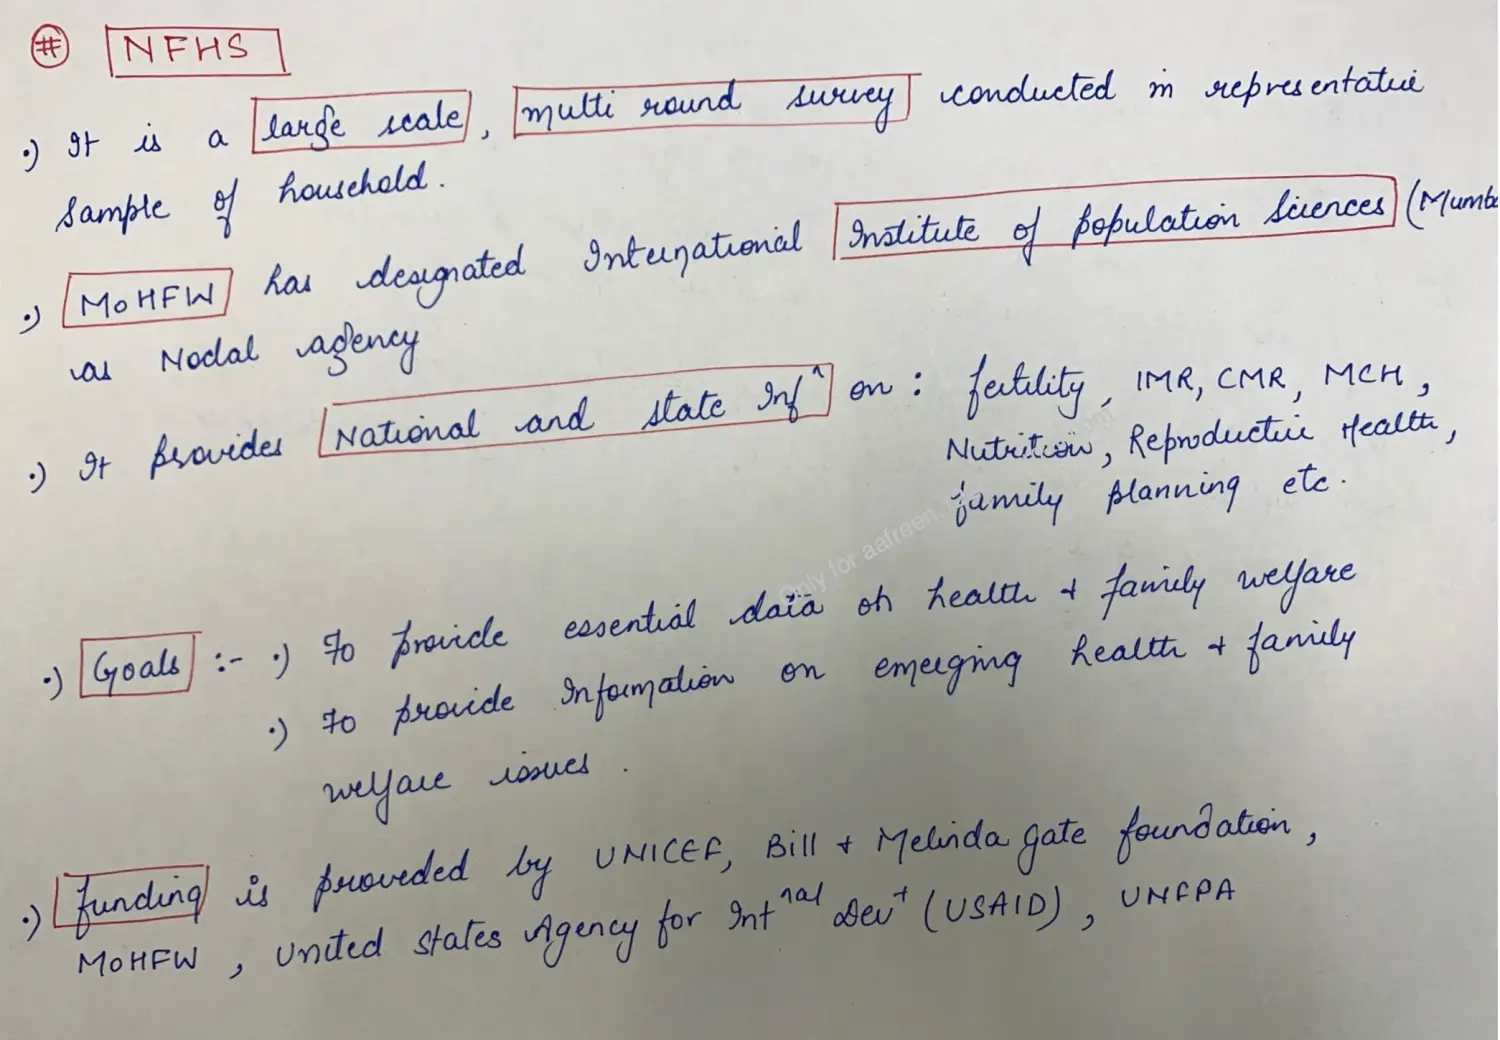 # NFHS
•) It is a large scale, multi round survey conducted in representative
sample of household.
•) MoHFW has designated International Institute of population Sciences (Mumb
as Nodal agency
•) It provides National and state Inf^n on : fertility, IMR, CMR, MCH,
Nutrition, Reproductive Health,
family planning etc.
•) Goals :- •) To provide essential data on health & family welfare
•) To provide Information on emerging health & family
welfare issues.
•) funding is provided by UNICEF, Bill & Melinda gate foundation,
MoHFW, United States Agency for Int^nal Dev^t (USAID), UNFPA
Only for aafreen